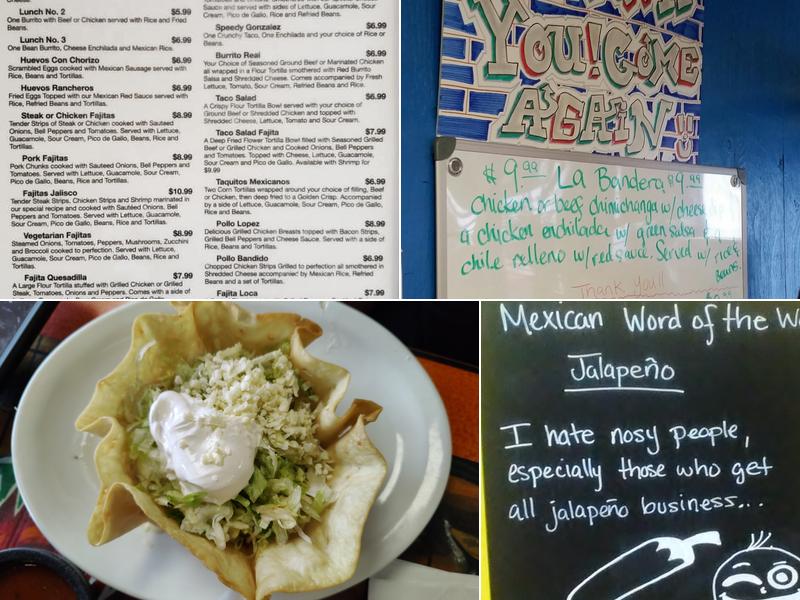 Cheese.
Lunch No. 2 $5.99
One Burrito with Beef or Chicken served with Rice and Fried
Beans.
Lunch No. 3 $6.99
One Bean Burrito, Cheese Enchilada and Mexican Rice.
Huevos Con Chorizo $6.99
Scrambled Eggs cooked with Mexican Sausage served with
Rice, Beans and Tortillas.
Huevos Rancheros $6.99
Fried Eggs Topped with our Mexican Red Sauce served with
Rice, Refried Beans and Tortillas.
Steak or Chicken Fajitas $8.99
Tender Strips of Steak or Chicken cooked with Sauteed
Onions, Bell Peppers and Tomatoes. Served with Lettuce,
Guacamole, Sour Cream, Pico de Gallo, Beans, Rice and
Tortillas.
Pork Fajitas $8.99
Pork Chunks cooked with Sauteed Onions, Bell Peppers and
Tomatoes. Served with Lettuce, Guacamole, Sour Cream,
Pico de Gallo, Beans, Rice and Tortillas.
Fajitas Jalisco $10.99
Tender Steak Strips, Chicken Strips and Shrimp marinated in
our special recipe and cooked with Sautéed Onions, Bell
Peppers and Tomatoes. Served with Lettuce, Guacamole,
Sour Cream, Pico de Gallo, Beans, Rice and Tortillas.
Vegetarian Fajitas $8.99
Steamed Onions, Tomatoes, Peppers, Mushrooms, Zucchini
and Broccoli cooked to perfection. Served with Lettuce,
Guacamole, Sour Cream, Pico de Gallo, Beans, Rice and
Tortillas.
Fajita Quesadilla $7.99
A Large Flour Tortilla stuffed with Grilled Chicken or Grilled
Steak, Tomatoes, Onions and Peppers. Comes with a side of
Sauce and served with sides of Lettuce, Guacamole, Sour
Cream, Pico de Gallo, Rice and Refried Beans.
Speedy Gonzalez $6.99
One Crunchy Taco, One Enchilada and your choice of Rice or
Beans.
Burrito Real $6.99
Your Choice of Seasoned Ground Beef or Marinated Chicken
all wrapped in a Flour Tortilla smothered with Red Burrito
Salsa and Shredded Cheese. Comes accompanied by Fresh
Lettuce, Tomato, Sour Cream, Refried Beans and Rice.
Taco Salad $6.99
A Crispy Flour Tortilla Bowl served with your choice of
Ground Beef or Shredded Chicken and topped with
Shredded Cheese, Lettuce, Tomato and Sour Cream.
Taco Salad Fajita $7.99
A Deep Fried Flower Tortilla Bowl filled with Seasoned Grilled
Beef or Grilled Chicken and Cooked Onions, Bell Peppers
and Tomatoes. Topped with Cheese, Lettuce, Guacamole,
Sour Cream and Pico de Gallo. Available with Shrimp for
$9.99
Taquitos Mexicanos $6.99
Two Corn Tortillas wrapped around your choice of filling, Beef
or Chicken, then deep fried to a Golden Crisp. Accompanied
by a side of Lettuce, Guacamole, Sour Cream, Pico de Gallo,
Rice and Beans.
Pollo Lopez $8.99
Delicious Grilled Chicken Breasts topped with Bacon Strips,
Grilled Bell Peppers and Cheese Sauce. Served with a side of
Rice, Beans and Tortillas.
Pollo Bandido $6.99
Chopped Chicken Strips Grilled to perfection all smothered in
Shredded Cheese accompanied by Mexican Rice, Refried
Beans and a set of Tortillas.
Fajita Loca $7.99
You! Come
Again!!
$9.99 La Bandera $9.99
Chicken or beef chimichanga w/ cheese
a chicken enchilada w/ green salsa
chile relleno w/ red sauce. Served w/ rice &
Beans.
Thank You!!
Mexican Word of the
Jalapeño
I hate nosy people,
especially those who get
all jalapeño business...